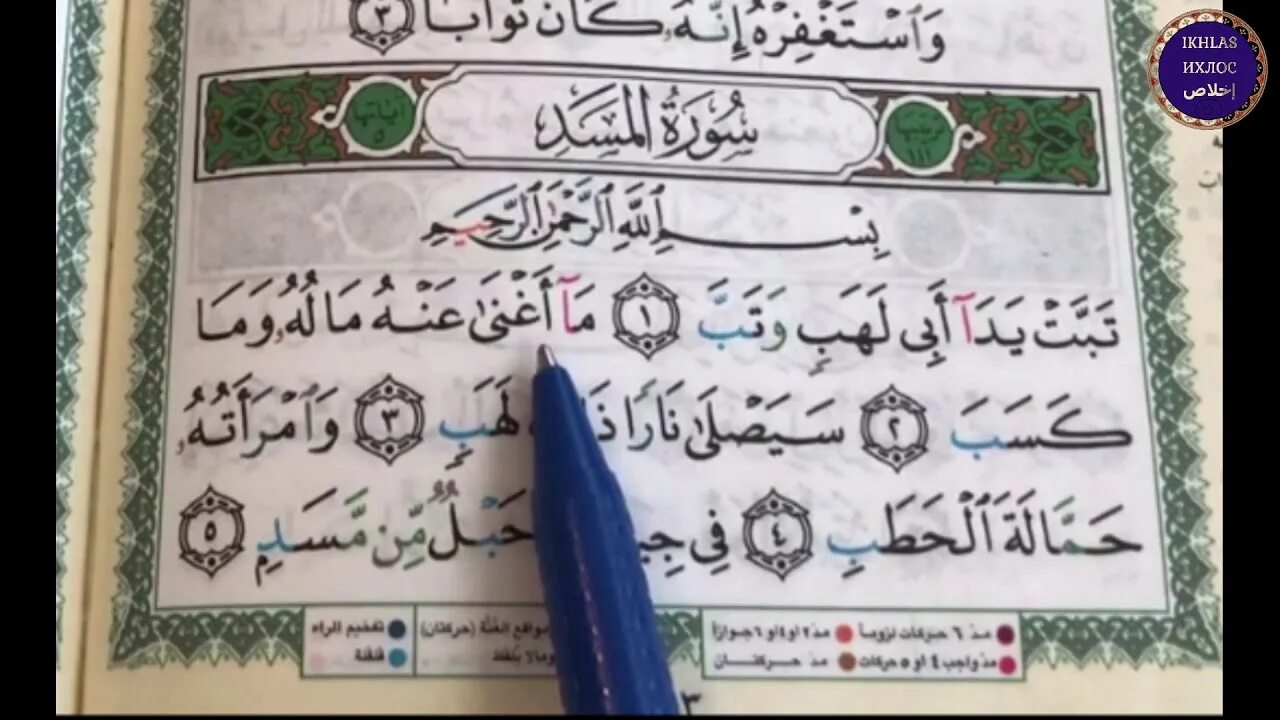 وَٱسۡتَغۡفِرۡهُ إِنَّهُۥ كَانَ تَوَّابَۢا ٣
IKHLAS
ИХЛОС
إخلاص
آياتها ٥
سُورَةُ المَسَدِ
ترتيبها ١١١
بِسۡمِ ٱللَّهِ ٱلرَّحۡمَٰنِ ٱلرَّحِيمِ
تَبَّتۡ يَدَآ أَبِي لَهَبٖ وَتَبَّ ١ مَآ أَغۡنَىٰ عَنۡهُ مَالُهُۥ وَمَا
كَسَبَ ٢ سَيَصۡلَىٰ نَارٗا لَهَبٖ ٣ وَٱمۡرَأَتُهُۥ
حَمَّالَةَ ٱلۡحَطَبِ ٤ فِي حَبۡلٞ مِّن مَّسَدِۭ ٥
مدّ ٦ حركات لزوماً مدّ ٢ او ٤ او ٦ جوازاً مواقع الغُنَّة (حركتان) تفخيم الراء
مدّ واجب ٤ او ٥ حركات مدّ حركتان ومالا يُلفَظ قلقلة